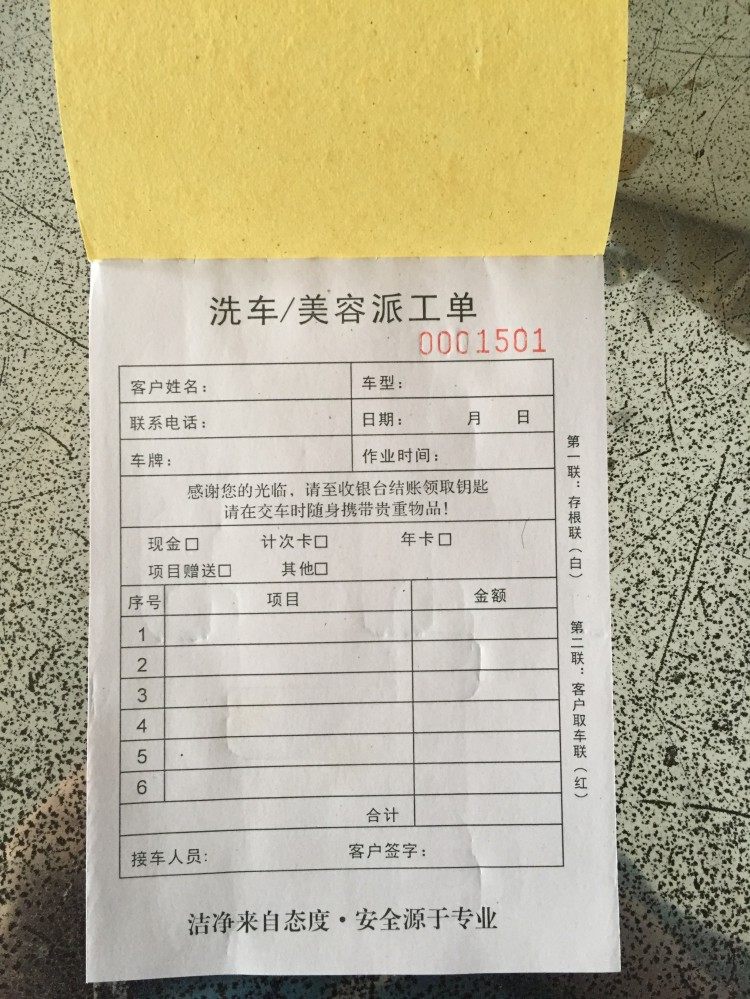 洗车/美容派工单
0001501
客户姓名： 车型：
联系电话： 日期： 月 日
车牌： 作业时间：
感谢您的光临，请至收银台结账领取钥匙
请在交车时随身携带贵重物品！
现金□ 计次卡□ 年卡□
项目赠送□ 其他□
序号 项目 金额
1
2
3
4
5
6
合计
接车人员： 客户签字：
第一联：存根联（白）
第二联：客户取车联（红）
洁净来自态度·安全源于专业